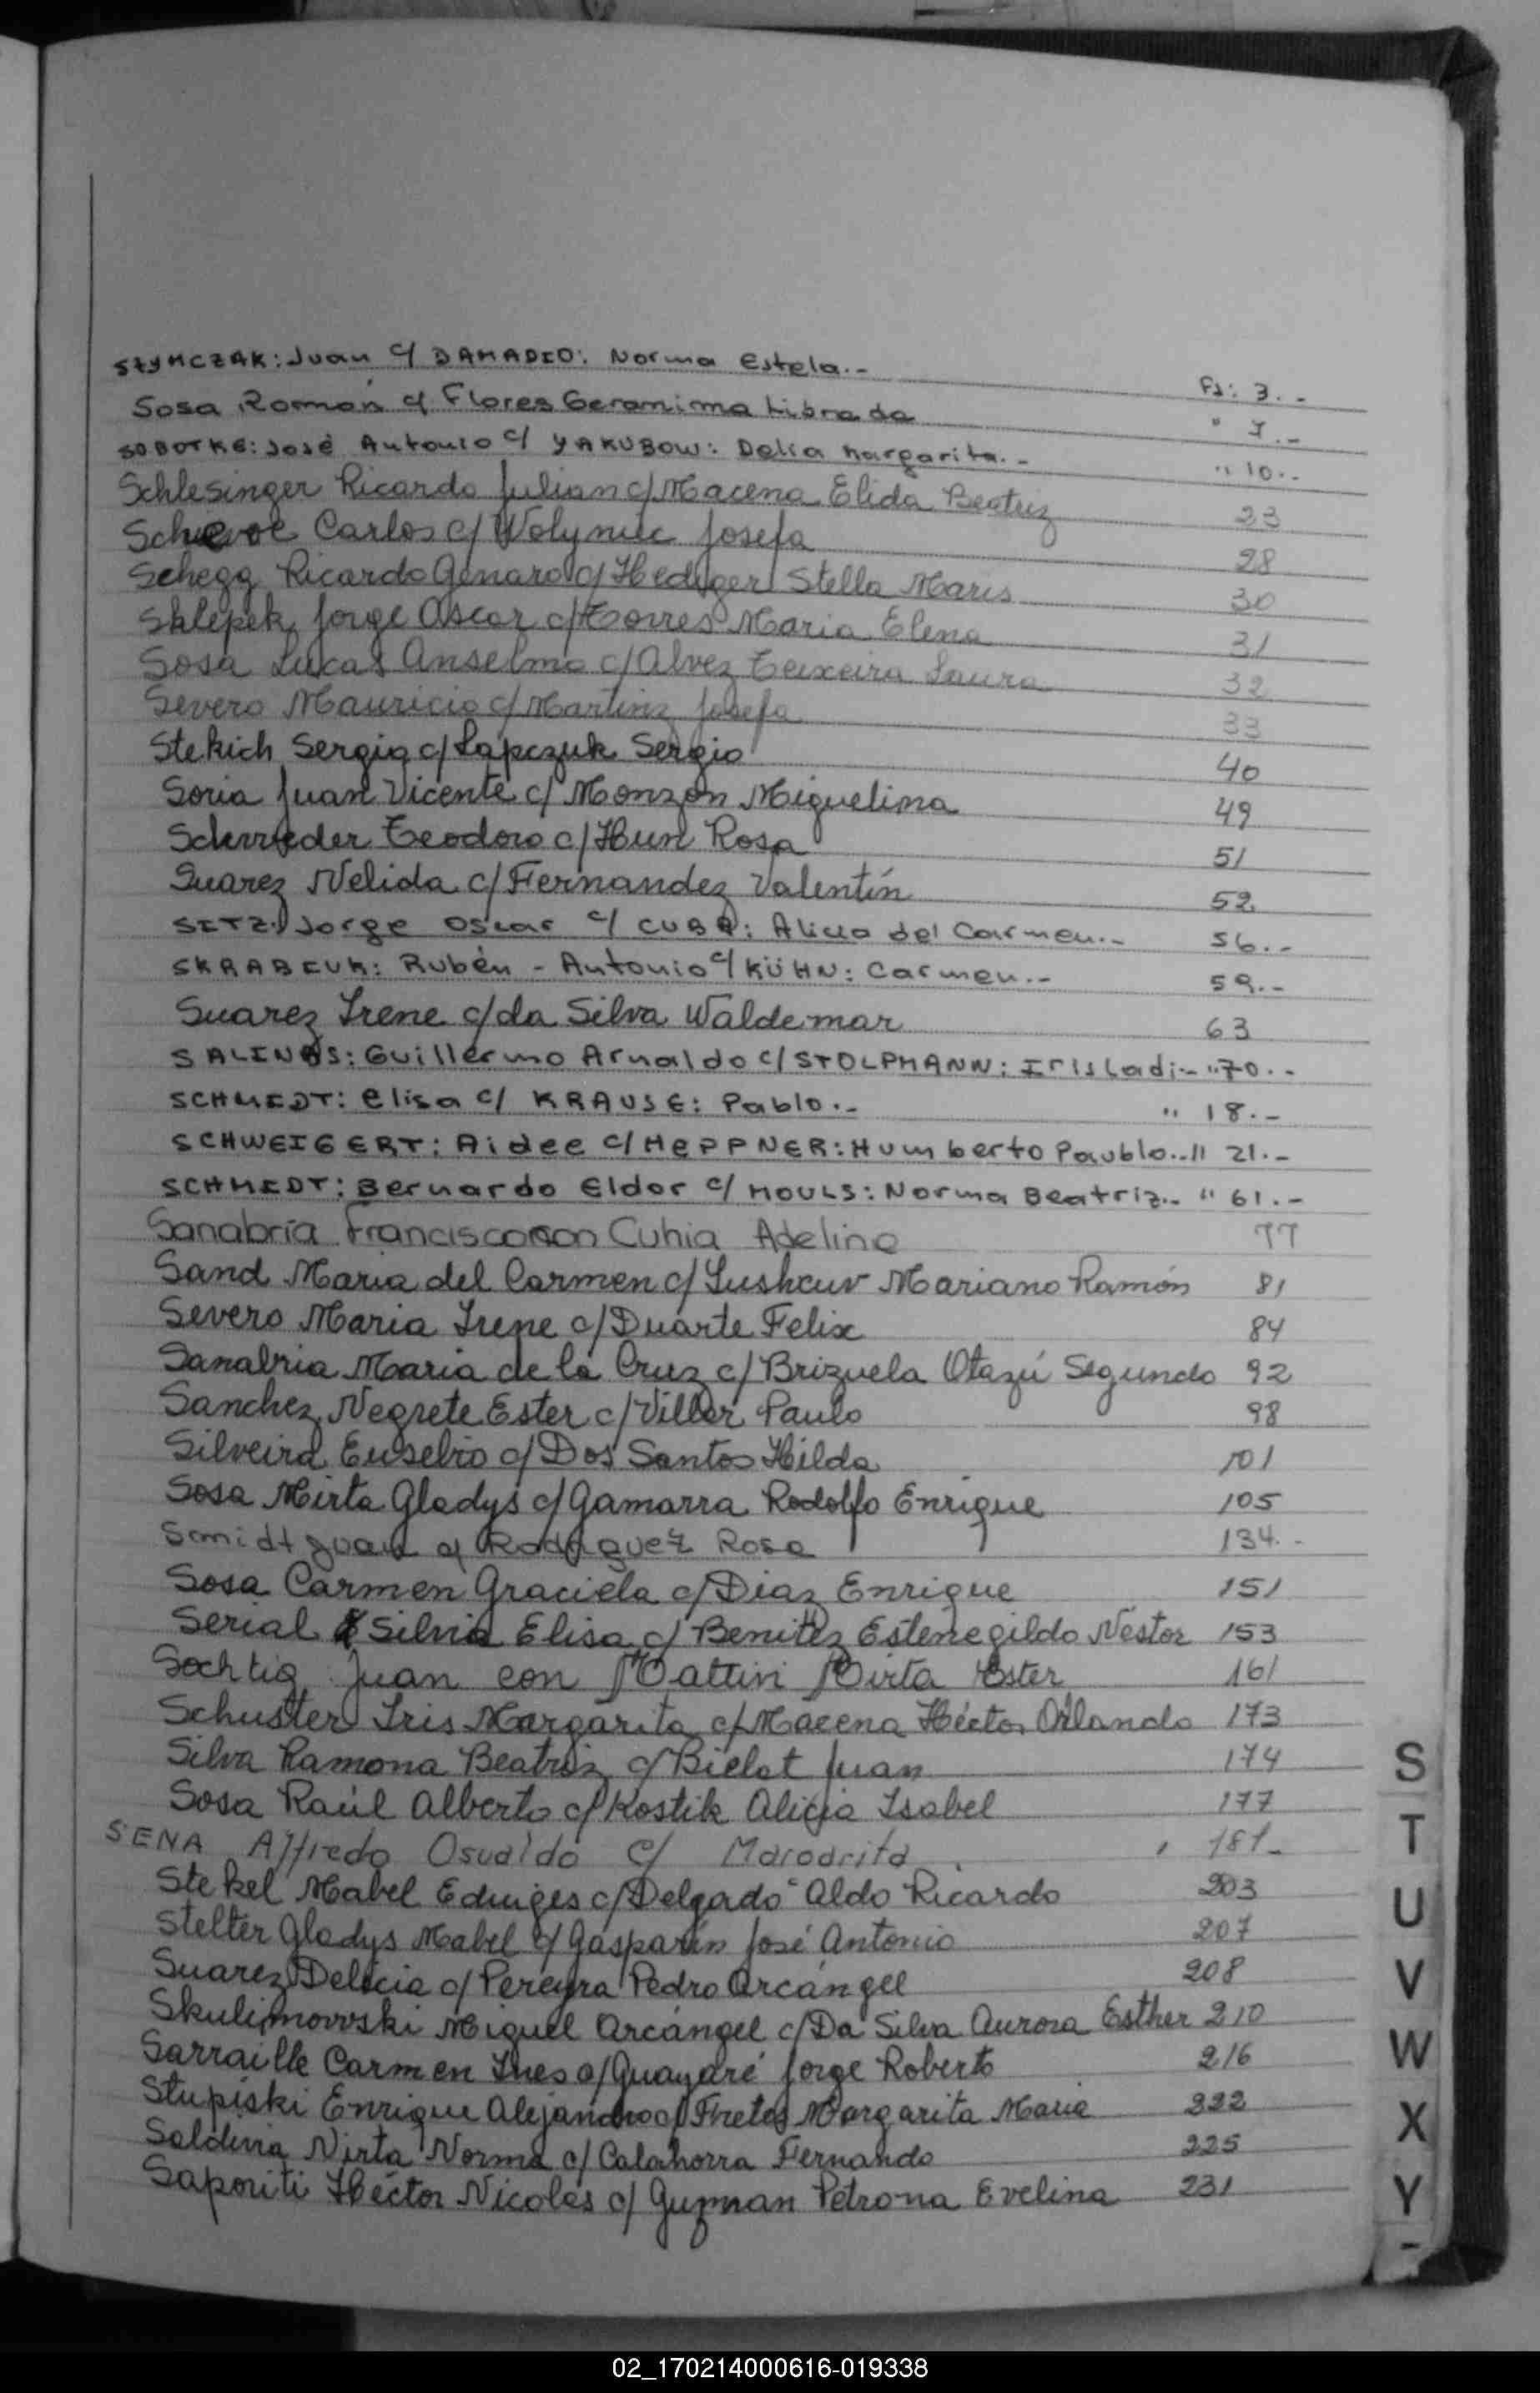 SZYMCZAK: Juan c/ DAMADIO: Norma Estela.- Fs: 3.-
Sosa Román c/ Flores Geranima Librada " 7.-
SOBOTKE: José Antonio c/ YAKUBOW: Delia Margarita.- " 10.-
Schlesinger Ricardo Julian c/ Macena Elida Beatriz 23
Carlos c/ Wolyniec Josefa 28
Schegg Ricardo Genaro c/ Hediger Stella Maris 30
Sklepek Jorge Oscar c/ Torres Maria Elena 31
Sosa Lucas Anselmo c/ Alvez Teixeira Laura 32
Severo Mauricio c/ Martinz Josefa 33
Stekich Sergio c/ Lapczuk Sergio 40
Soria Juan Vicente c/ Monzon Miguelina 49
Teodoro c/ Hun Rosa 51
Suarez Nelida c/ Fernandez Valentín 52
SITZ: Jorge Oscar c/ CUBA: Alicia del Carmen.- 56.-
SKRABIUK: Rubén - Antonio c/ KÜHN: Carmen.- 59.-
Suarez Irene c/ da Silva Waldemar 63
SALINAS: Guillermo Arnaldo c/ STOLPMANN: Iris Ladi.- " 70.-
SCHMIDT: Elisa c/ KRAUSE: Pablo.- " 18.-
SCHWEIGERT: Aidee c/ HEPPNER: Humberto Paublo.. " 21.-
SCHMIDT: Bernardo Eldor c/ MOULS: Norma Beatriz.- " 61.-
Sanabria Francisco con Cuhia Adelina 77
Sand Maria del Carmen c/ Lushcuv Mariano Ramón 81
Severo Maria Irene c/ Duarte Felix 84
Sanabria Maria de la Cruz c/ Brizuela Otazú Segundo 92
Sanchez Negrete Ester c/ Viller Paulo 98
Silveira Eusebio c/ Dos Santos Hilda 101
Sosa Mirta Gladys c/ Gamarra Rodolfo Enrique 105
Smidt Juan c/ Rodriguez Rosa 134.-
Sosa Carmen Graciela c/ Diaz Enrique 151
Serial Silvia Elisa c/ Benitez Estenegildo Néstor 153
Sochtig Juan con Mattivi Mirta Ester 161
Schuster Iris Margarita c/ Macena Héctor Orlando 173
Silva Ramona Beatriz c/ Bielat Juan 174
Sosa Raúl Alberto c/ Kostik Alicia Isabel 177
SENA Alfredo Osvaldo c/ 181-
Stekel Mabel Eduiges c/ Delgado Aldo Ricardo 203
Stelter Gladys Mabel c/ Gasparin José Antonio 207
Suarez Delicia c/ Pereyra Pedro Arcángel 208
Skulimovski Miguel Arcángel c/ Da Silva Aurora Esther 210
Sarraille Carmen Ines c/ Guayaré Jorge Roberto 216
Stupiski Enrique Alejandro c/ Fretes Margarita Maria 222
Saldivia Nirta Norma c/ Calahorra Fernando 225
Saporiti Héctor Nicolas c/ Guzman Petrona Evelina 231
S
T
U
V
W
X
Y
-
02_170214000616-019338